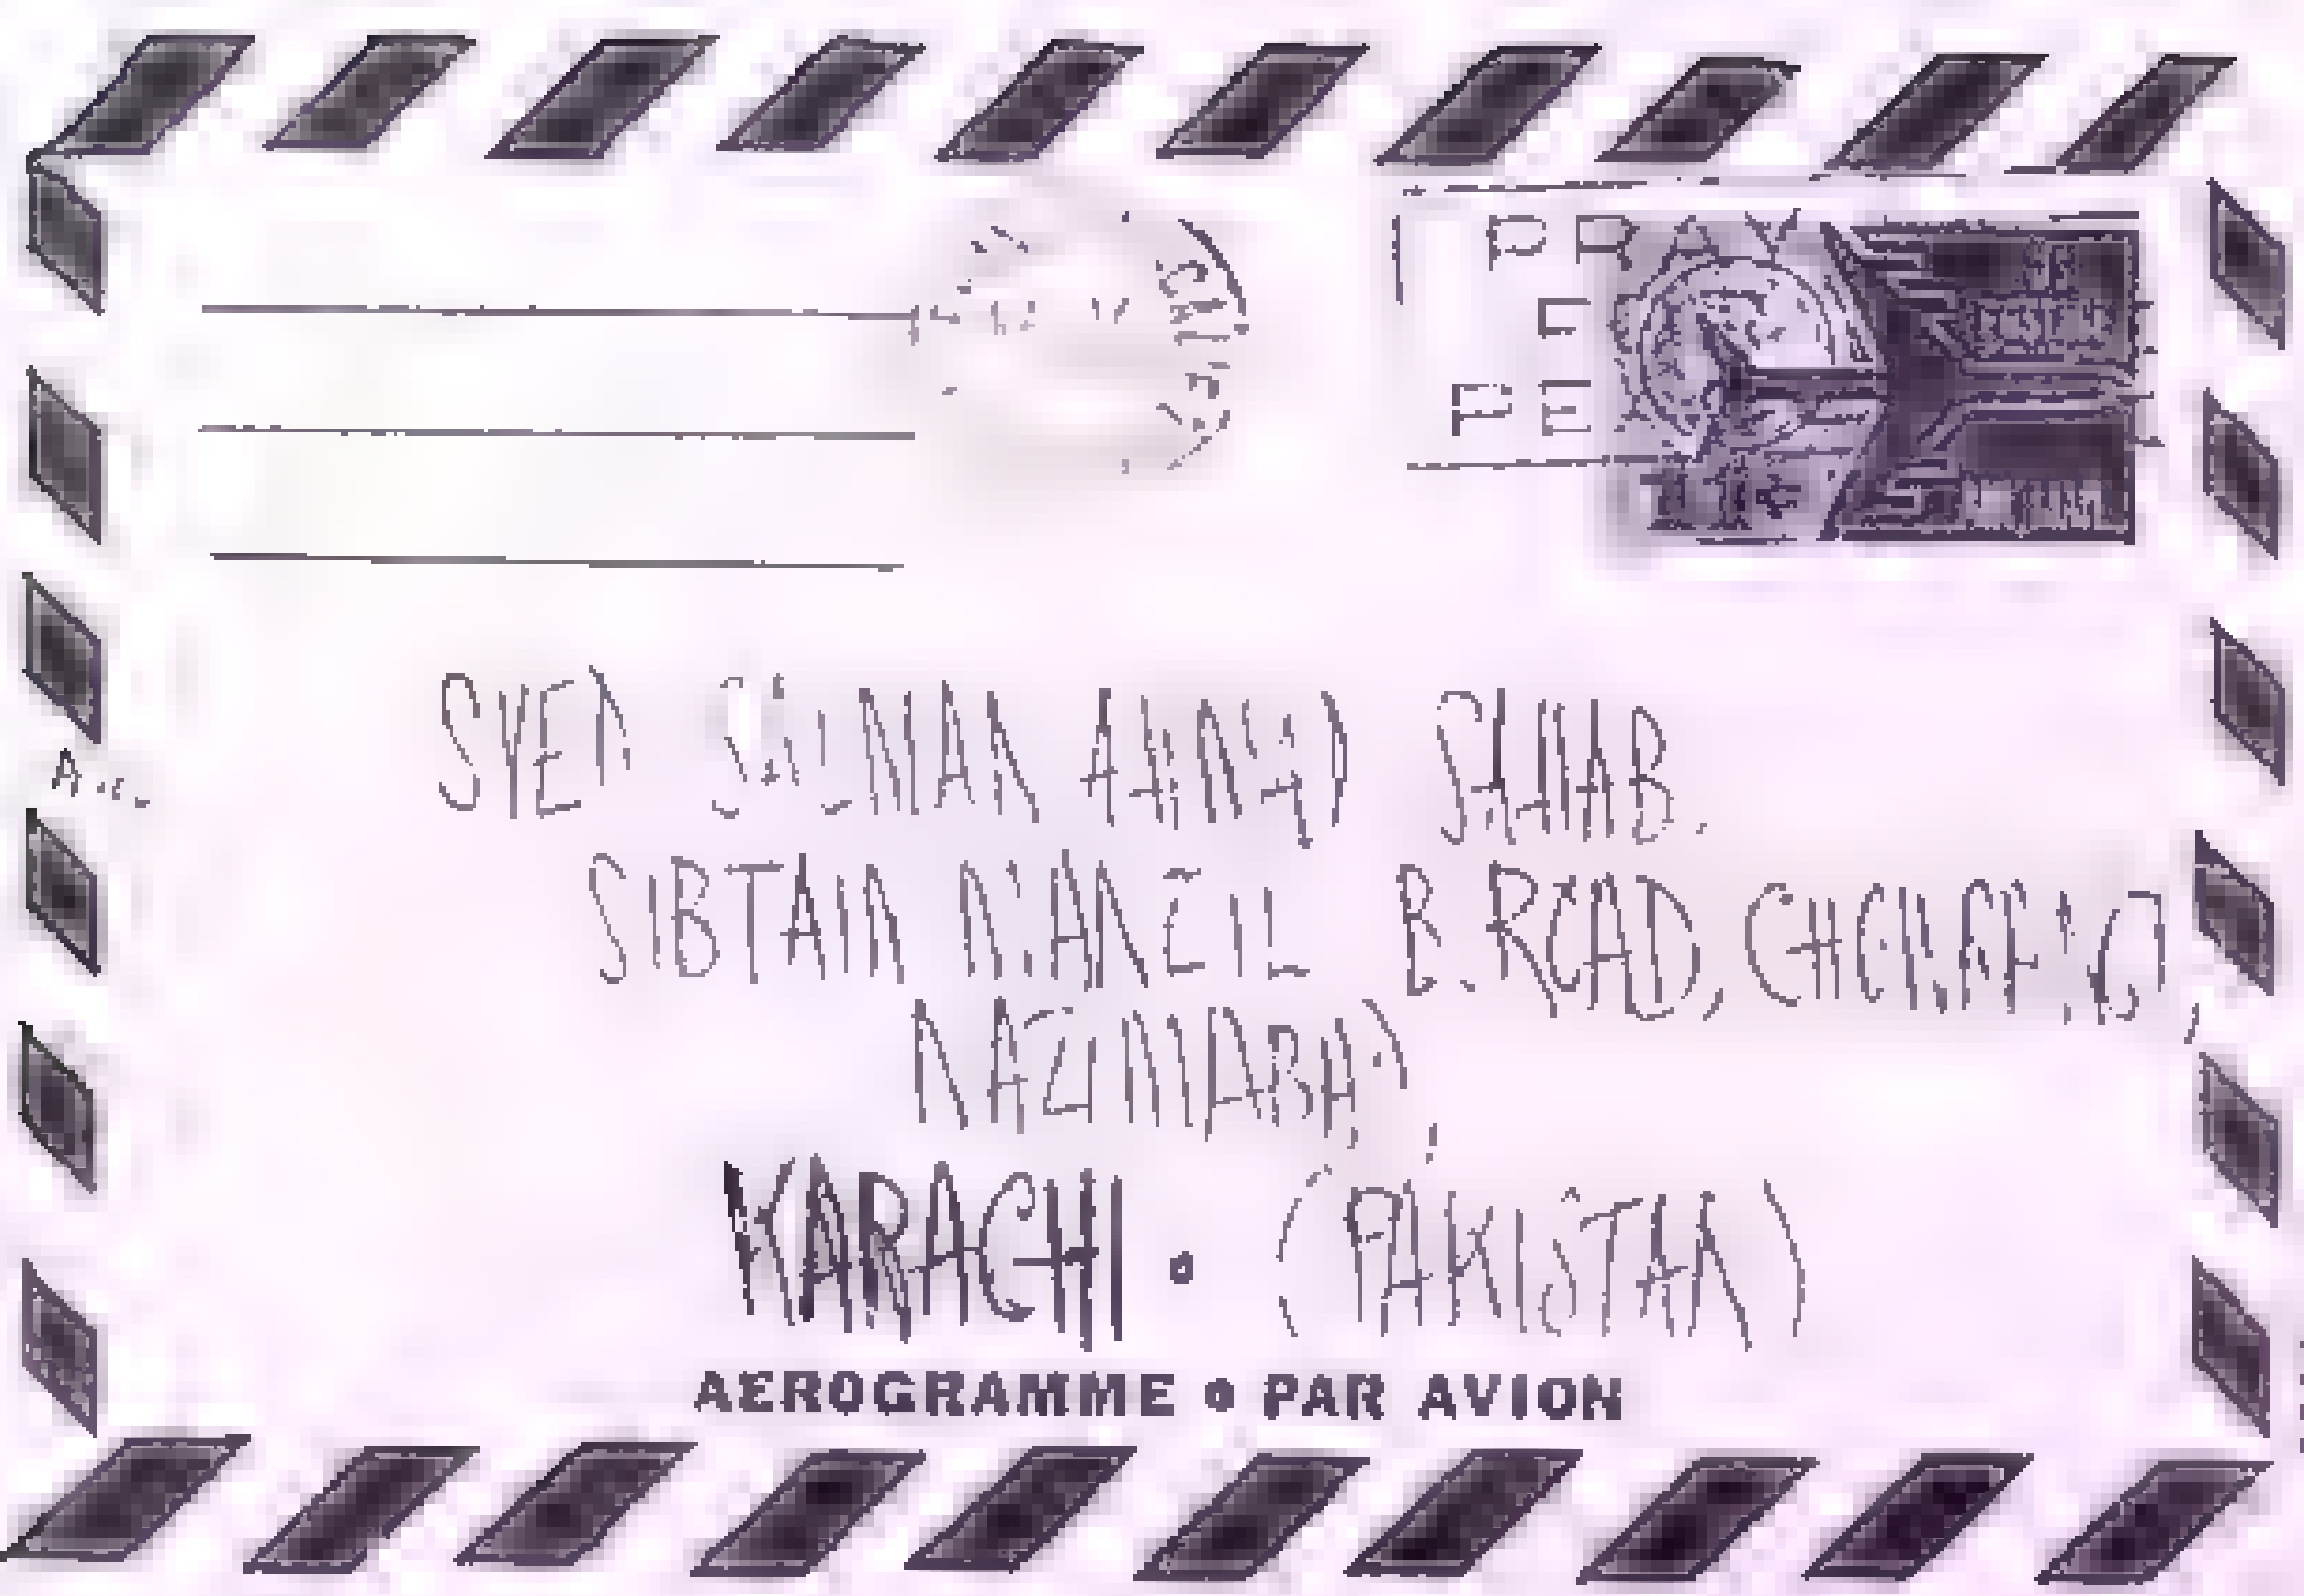 PRAY
F
PE
11¢
SYED SALMAN AHMAD SAHAB.
SIBTAIN MANZIL B. ROAD,
NAZIMABAD,
KARACHI. (PAKISTAN)
AEROGRAMME • PAR AVION